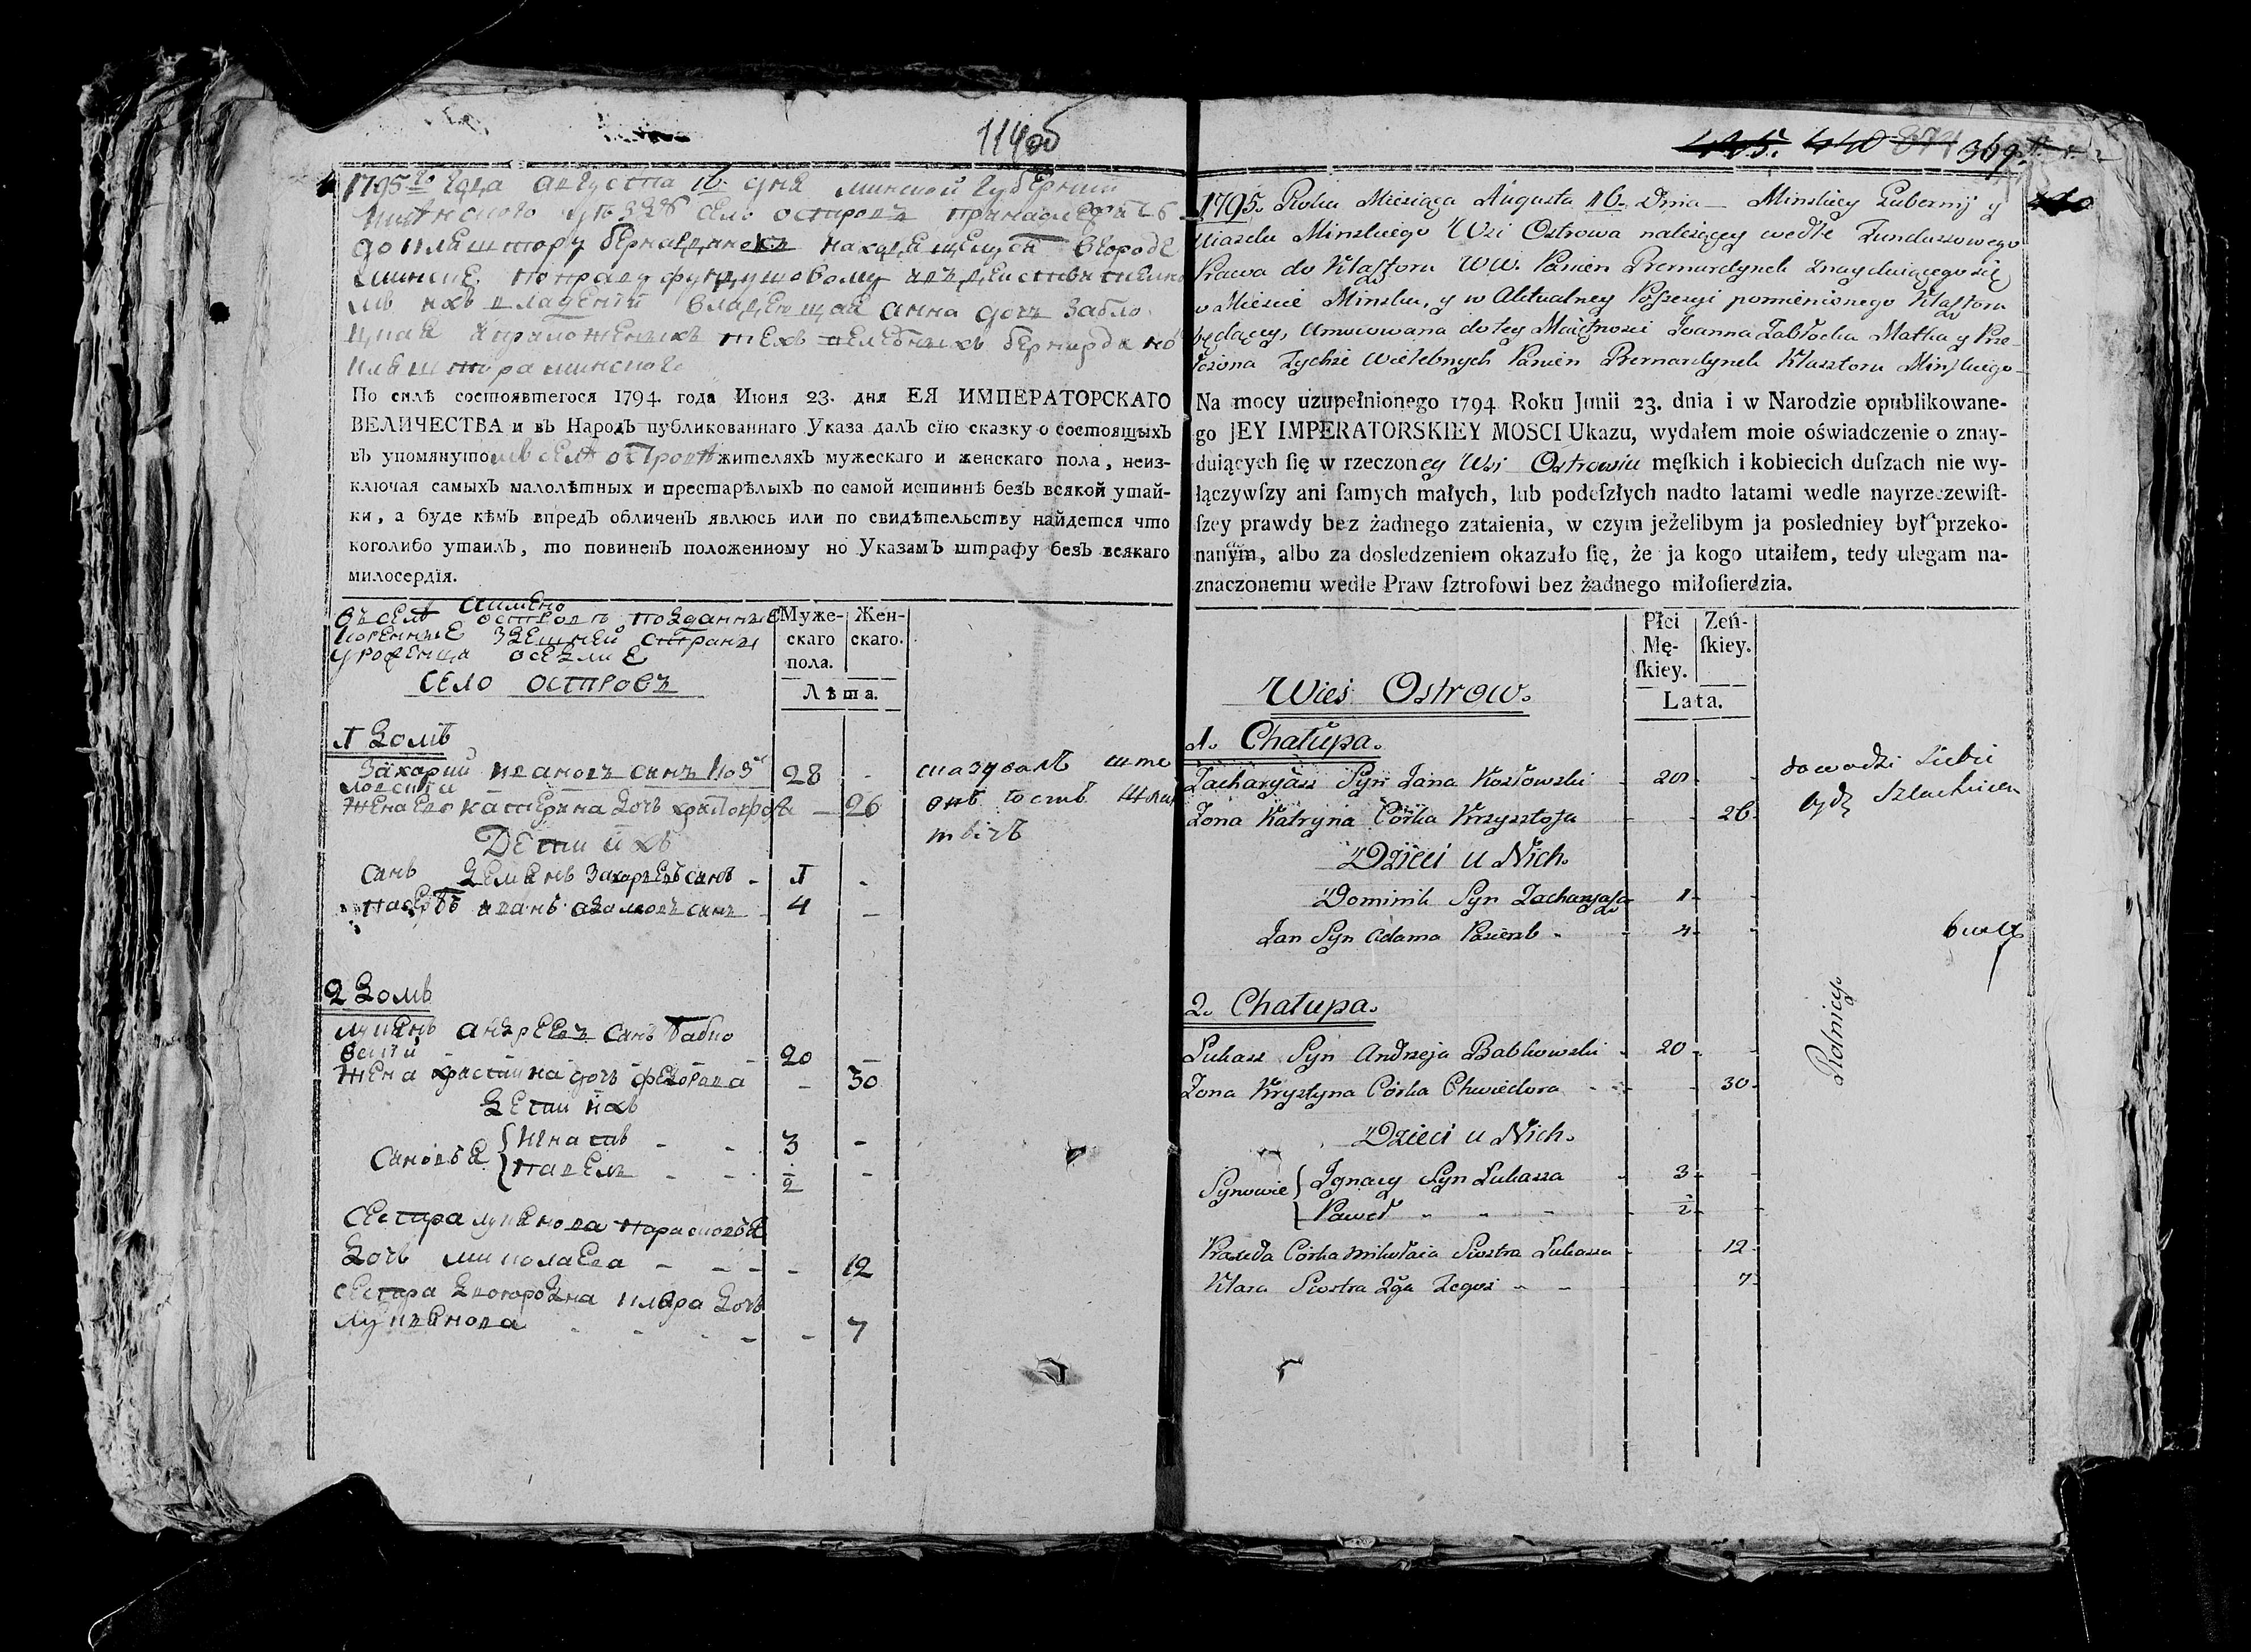 114об
1795го года августа 16 дня минской губернии
село островъ
до кляштору бернардинокъ находящемуся в городе
минске по праву фундушовому
ихъ владении владеющая анна дочь забло
цкая техъ бернардино
кляштора минского
По силѣ состоявшегося 1794. года Июня 23. дня ЕЯ ИМПЕРАТОРСКАГО
ВЕЛИЧЕСТВА и въ Народъ публикованнаго Указа далъ сїю сказку о состоящыхъ
въ упомянутомъ селѣ островѣ жителяхъ мужескаго и женскаго пола, неиз-
ключая самыхъ малолѣтныхъ и престарѣлыхъ по самой истиннѣ безъ всякой утай-
ки, а буде кѣмъ впредъ обличенъ явлюсь или по свидѣтельству найдется что
коголибо утаилъ, то повиненъ положенному по Указамъ штрафу безъ всякаго
милосердїя.
аимено
въ селѣ островъ подданные
коренные здешней страны
уроженца оседлие
Муже-
скаго
пола.
Жен-
скаго.
Лѣта.
село островъ
1 домъ
Захарий ивановъ синъ коз
ловский 28 -
жена его катерина дочь криштофова - 26
сказувалъ што
онъ іостъ шлах
тичъ
Дети ихъ
синъ демянъ захаревъ синъ - 1 -
пасербъ иванъ адамовъ синъ 4 -
2 домъ
лукянъ андреевъ синъ бабко
вский - 20 -
жена христина дочь федорова - 30
дети ихъ
синовья { игнатъ - - 3 -
павелъ - - 1/2 -
сестра лукянова парасковья
дочь миколаева - - - - 12
сестра двоюродна клара дочь
лукянова - - - - 7
495. 440 874 369.
1795. Roku Miesiąca Augusta 16. Dnia — Minskiey Gubernij y
Uiazdu Minskiego Wsi Ostrowa należącey wedle Funduszowego
Prawa do Klasztoru WW. Panien Bernardynek znayduiącego się
w Mieście Minsku, y w Aktualney Possessyi pomienionego Klasztoru
będącey, Umocowana do tey Maiętności Joanna Zabłocka Matka y Prze-
łożona Tychże Wielebnych Panien Bernardynek Klasztoru Minskiego -
Na mocy uzupełnionego 1794 Roku Junii 23. dnia i w Narodzie opublikowane-
go JEY IMPERATORSKIEY MOSCI Ukazu, wydałem moie oświadczenie o znay-
duiących ſię w rzeczoney Wsi Ostrowiu męſkich i kobiecich duſzach nie wy-
łączywſzy ani ſamych małych, lub podeſzłych nadto latami wedle nayrzeczewiſt-
ſzey prawdy bez żadnego zataienia, w czym jeżelibym ja posledniey był przeko-
nanym, albo za dosledzeniem okazało ſię, że ja kogo utaiłem, tedy ulegam na-
znaczonemu wedle Praw ſztrofowi bez żadnego miłoſierdzia.
Płci
Mę-
ſkiey.
Zeń-
ſkiey.
Lata.
Wieś Ostrow.
1. Chałupa.
Zacharyasz Syn Jana Kozłowski - 28 -
Żona Katryna Córka Krzysztofa - - 26.
dowodzi siebie
bydź Szlachcicem
Dzieci u Nich.
Dominik Syn Zacharyasza 1 -
Jan Syn Adama Pasierzb - - 4 -
Rolnicy
2. Chałupa.
Łukasz Syn Andrzeja Babkowski - 20 -
Żona Krystyna Córka Chwiedora - - - 30.
Dzieci u Nich.
Synowie { Ignacy Syn Łukasza - 3 -
Paweł - - - - 1/2 -
Praxeda Córka Mikołaia Siostra Łukasza - - 12 -
Klara Siostra 2ga Tegoż - - - - 7 -